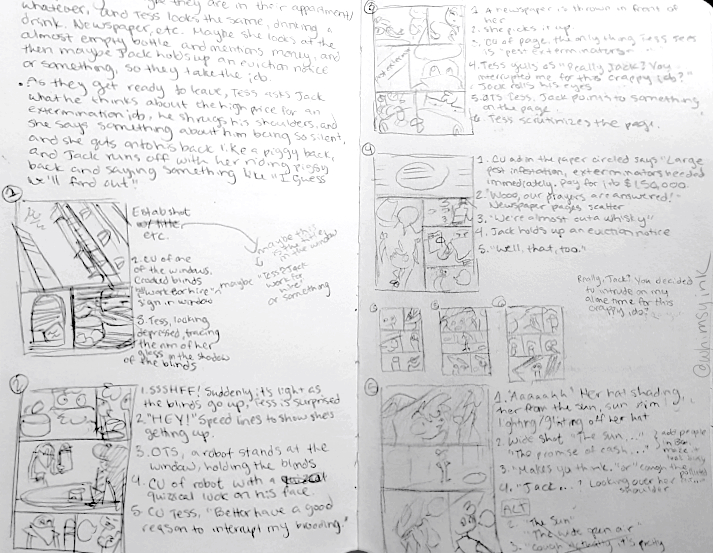 whatever, and Tess looks the same, drinking a
drink. Newspaper, etc. Maybe she looks at the
almost empty bottle and mentions money, and
then maybe Jack holds up an eviction notice
or something, so they take the job.
• As they get ready to leave, Tess asks Jack
what he thinks about the high price for an
extermination job, he shrugs his shoulders, and
she says something about him being so silent,
and she gets onto his back like a piggy back,
and Jack runs off with her riding piggy
back and saying something like "I guess
we'll find out".
1
Estab shot
w/ title
etc.
2. CU of one
of the windows,
Crooked blinds
"Will work for hire", maybe
sign in window
maybe their
in the window
"Tess & Jack
work for
hire"
or something
3. Tess, looking
depressed, tracing
the rim of her
glass in the shadow
of the blinds
2
1. SSSHFF! Suddenly, it's light as
the blinds go up, Tess is surprised
2. "HEY!" Speed lines to show she's
getting up.
3. OTS, a robot stands at the
window, holding the blinds
4. CU of robot with a
quizzical look on his face.
5. CU Tess, "Better have a good
reason to interrupt my brooding."
3
1. A newspaper is thrown in front of
her
2. She picks it up
3. CU of page, the only thing Tess sees
is "pest exterminators"
4. Tess yells as "Really Jack? You
interrupted me for this crappy job?"
Jack rolls his eyes
5. OTS Tess, Jack points to something
on the page.
6. Tess scrutinizes the page.
4
1. CU ad in the paper circled says "Large
pest infestation, exterminators needed
immediately. Pay for job $150,000
2. "Wooo, our prayers are answered!"
Newspaper pages scatter
3. "We're almost outa whisky"
4. Jack holds up an eviction notice
5. "Well, that, too."
Really, Jack? You decided
to intrude on my
alone time for this
crappy job?
5
1. "Aaaaahh" Her hat shading
her from the sun, sun rim
lighting/glinting off her hat
2. Wide shot "The sun,..."
"The promise of cash..."
add people
3. "Makes ya think.." or "cough the polluted
4. "Jack...? Looking over her
shoulder
ALT
2. "The Sun"
"The wide open air"
3. *cough* actually it's pretty
@whimsy.ink